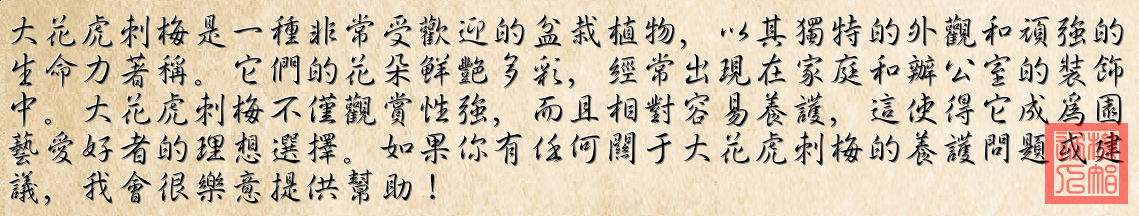 大花虎刺梅是一種非常受歡迎的盆栽植物，以其獨特的外觀和頑強的
生命力著稱。它們的花朵鮮艷多彩，經常出現在家庭和辦公室的裝飾
中。大花虎刺梅不僅觀賞性強，而且相對容易養護，這使得它成爲園
藝愛好者的理想選擇。如果你有任何關于大花虎刺梅的養護問題或建
議，我會很樂意提供幫助！